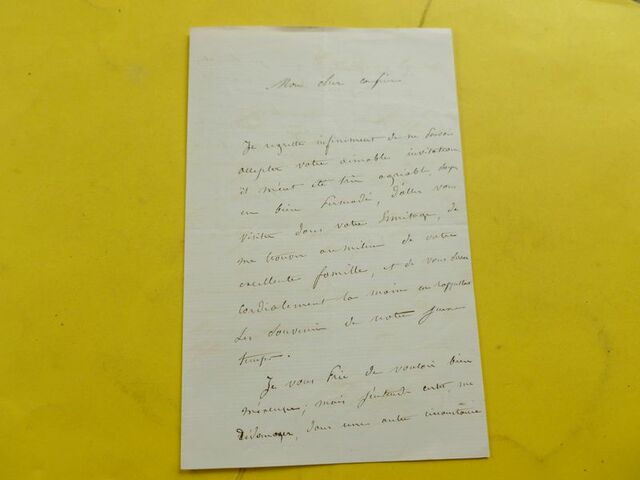 Mon cher confrère
Je regrette infiniment de ne pouvoir
accepter votre aimable invitation
il m'eut été très agréable, soyez
en bien persuadé, d'aller vous
visiter dans votre Ermitage, de
me trouver au milieu de votre
excellente famille, et de vous serrer
cordialement la main en rappelant
les souvenirs de notre jeune
temps.
Je vous prie de vouloir bien
m'excuser; mais j'entends certes, me
dédomager, dans une autre circonstance